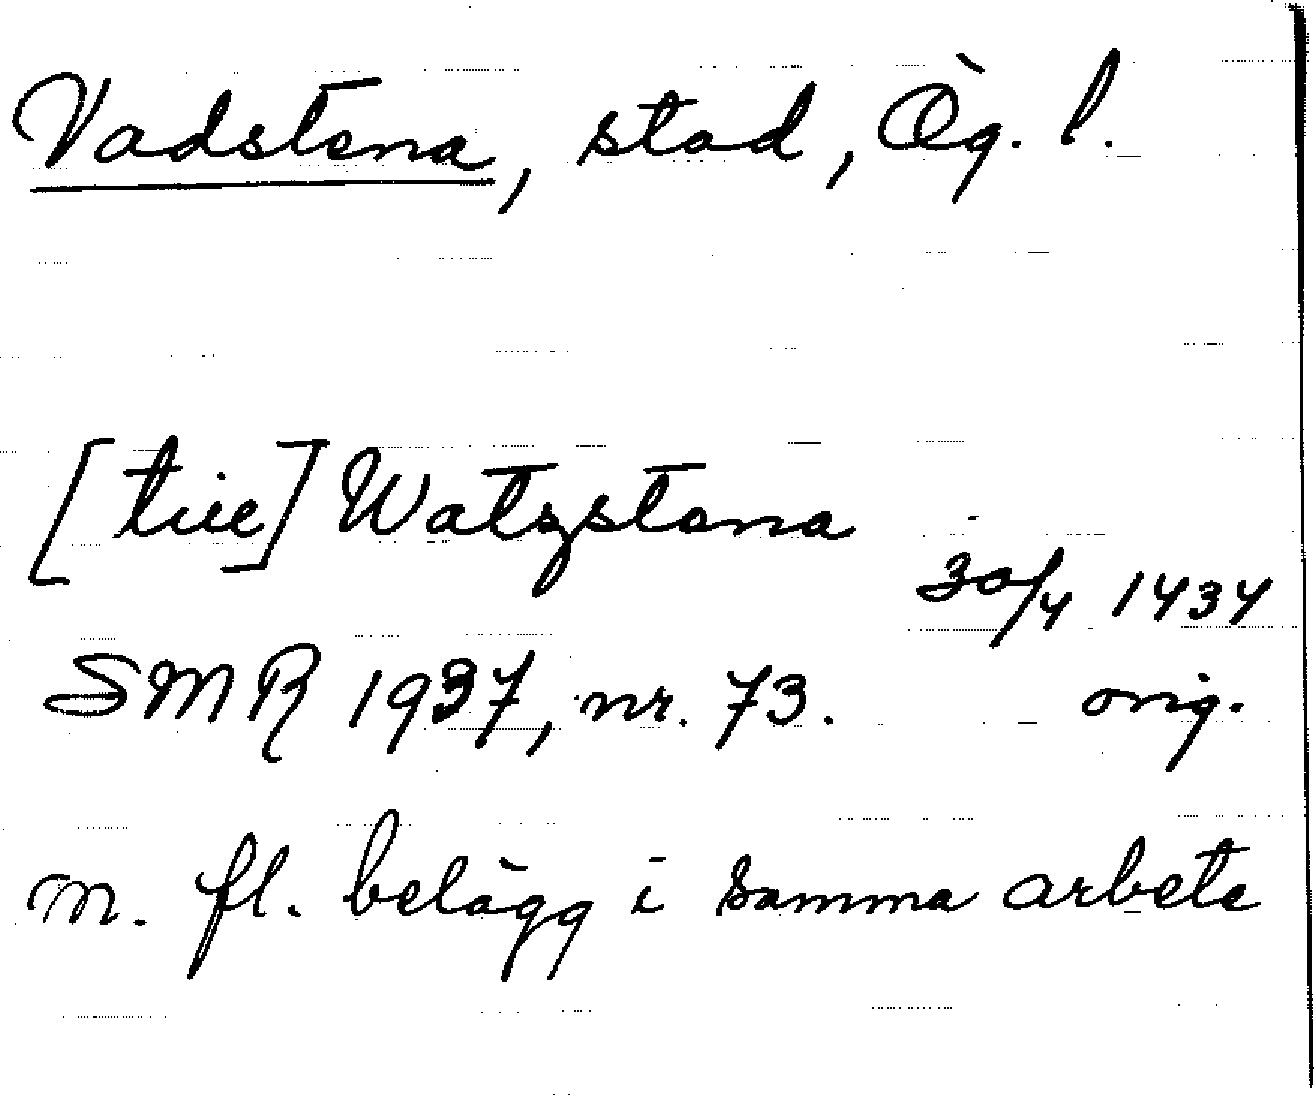 Vadstena, stad, Ög. l.
[tiie] Watzstena
30/4 1434
SMR 1937, nr. 73. orig.
m. fl. belägg i samma arbete